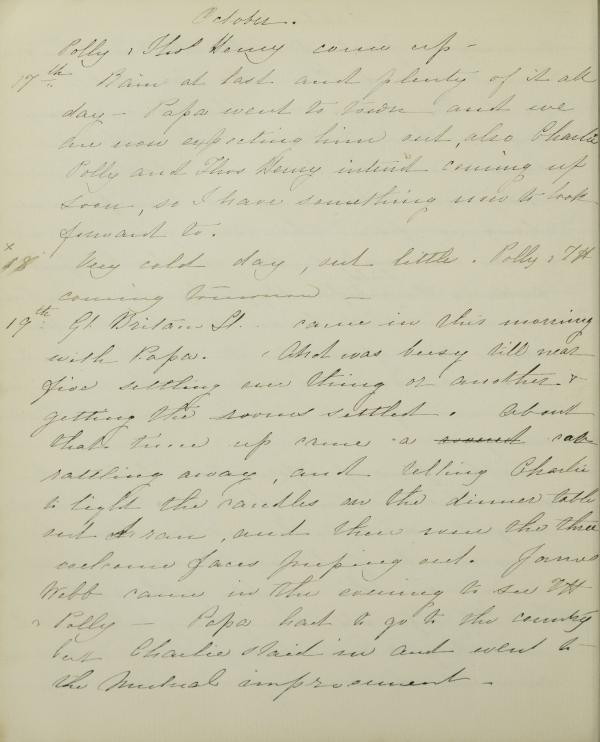 October.
Polly & Thos Henry come up -
17th. Rain at last and plenty of it all
day - Papa went to town and we
are now expecting him out, also Charlie
Polly and Thos Henry intend coming up
soon, so I have something now to look
forward to.
x 18 Very cold day, out little. Polly & TH
coming tomorrow —
19th. Gt. Britain St. came in this morning
with Papa. And was busy till near
five settling one thing or another &
getting the rooms settled. About
that time up came a cab
rattling away, and telling Charlie
to light the candles on the dinner table
out I ran, and there were the three
welcome faces peeping out. James
Webb came in the evening to see TH
& Polly — Papa had to go to the country
but Charlie staid in and went to
the Mutual improvement -